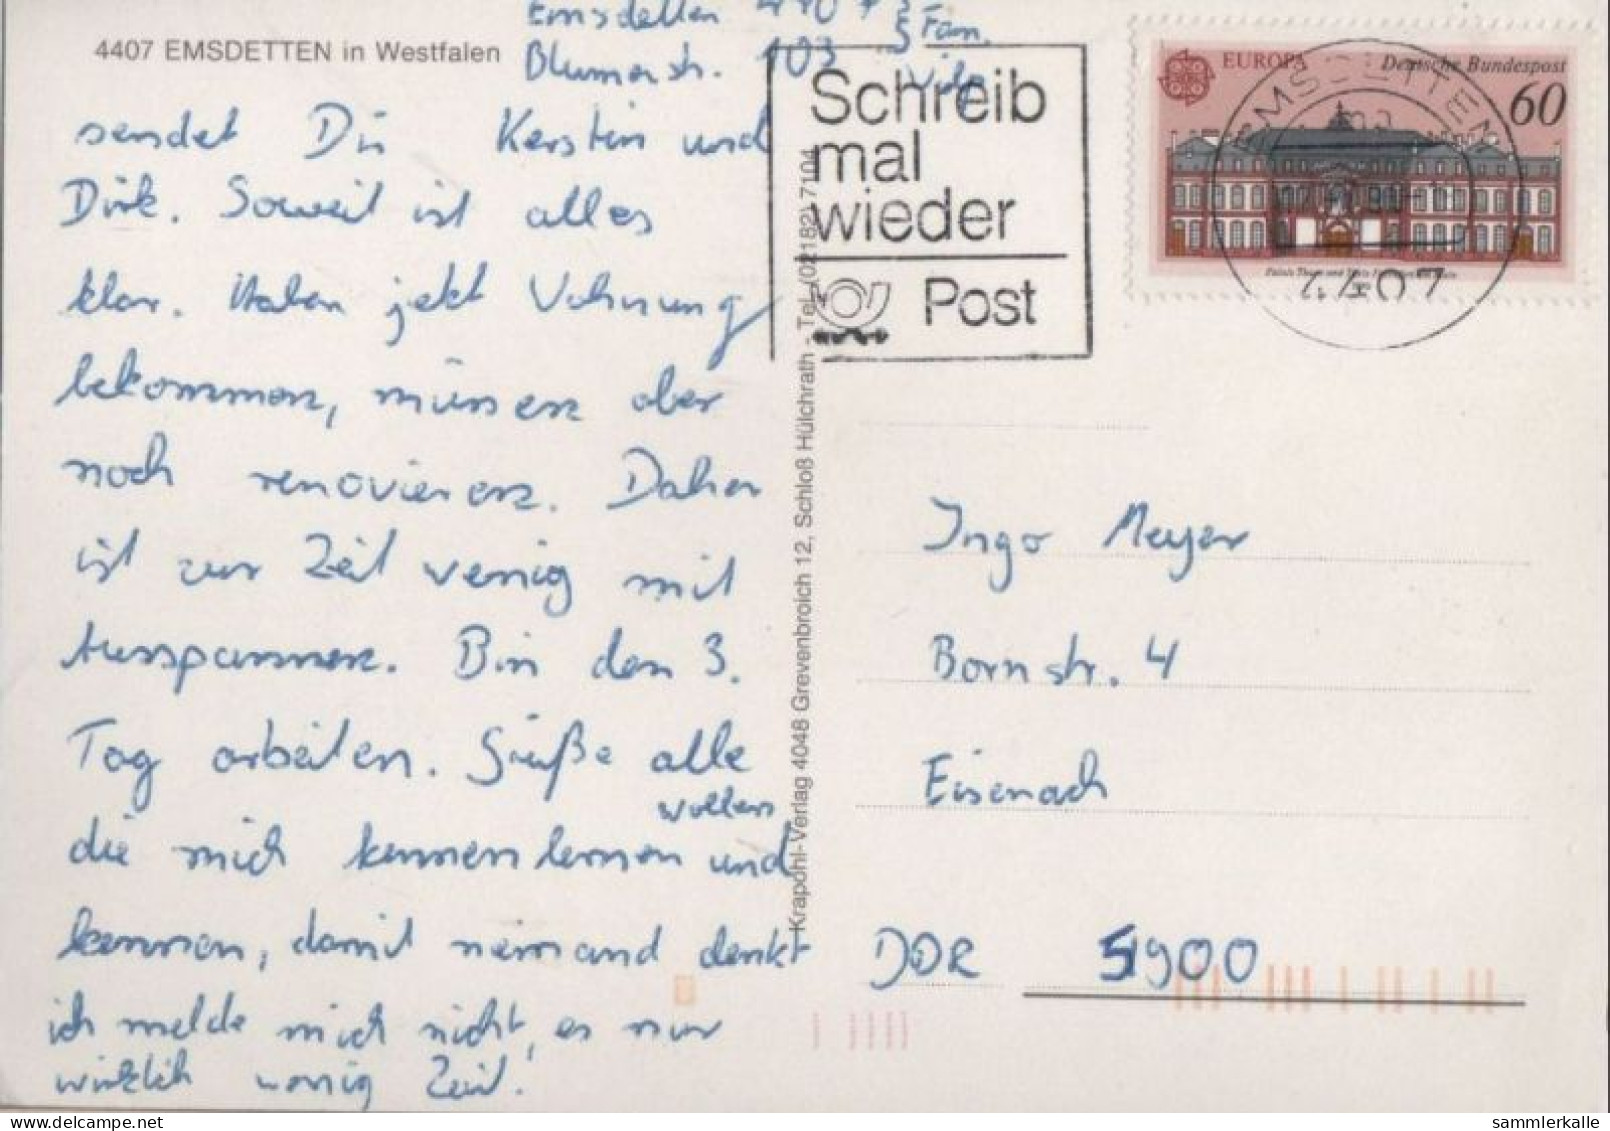 Emsdetten 4407
Fam.
4407 EMSDETTEN in Westfalen
Blumenstr. 103
sendet Dir Kerstin und
Dirk. Soweit ist alles
klar. Haben jetzt Wohnung
bekommen, müssen aber
noch renovieren. Daher
ist zur Zeit wenig mit
Ausspannen. Bin den 3.
Tag arbeiten. Grüße alle
wollen
die mich kennenlernen und
kennen, damit niemand denkt
ich melde mich nicht, es nur
wirklich wenig Zeit!
Krapohl-Verlag 4048 Grevenbroich 12, Schloß Hülchrath - Tel. (02182) 7104
Schreib
mal
wieder
Post
EUROPA Deutsche Bundespost
60
EMSDETTEN
4407
Ingo Meyer
Bornstr. 4
Eisenach
DDR 5900
sammlerkalle